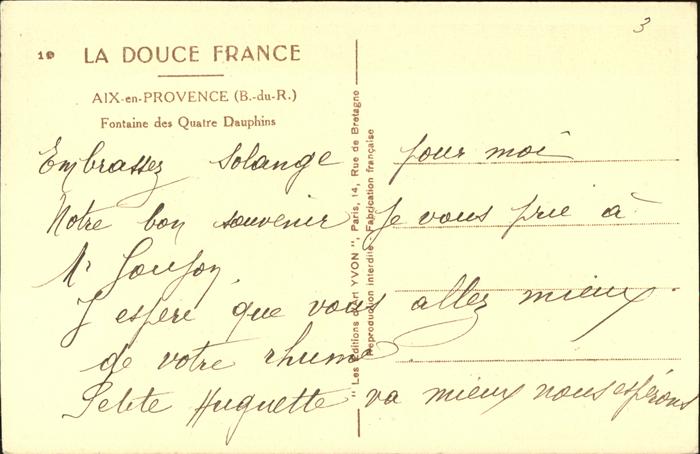 3
10 LA DOUCE FRANCE
AIX-en-PROVENCE (B.-du-R.)
Fontaine des Quatre Dauphins
Embrassez Solange pour moi
Notre bon souvenir je vous prie à
Mr Goujon.
J'espere que vous allez mieux
de votre rhume
Petite Huguette va mieux nous espérons
"Les Editions d'Art YVON", Paris, 14, Rue de Bretagne
Reproduction interdite Fabrication française